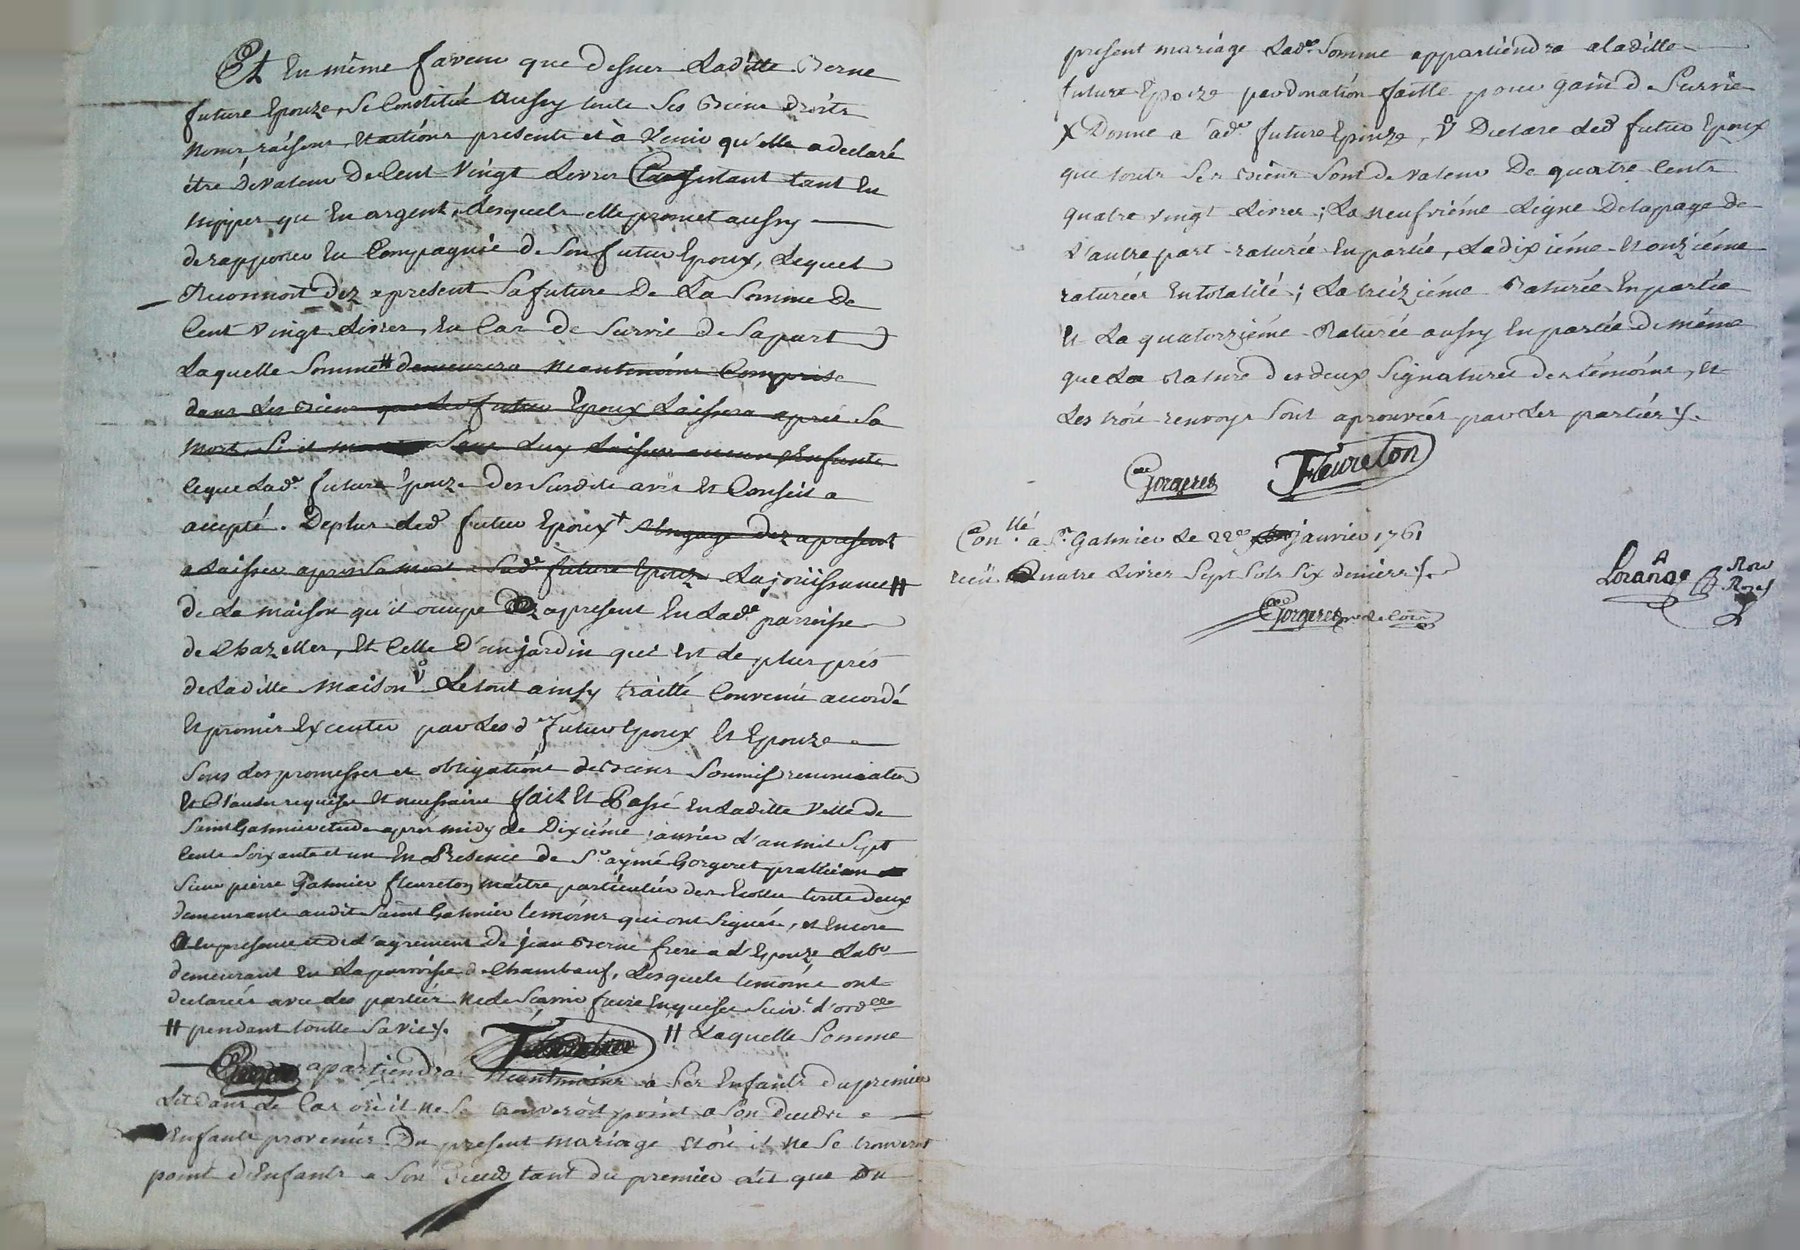 Et En même faveur que dessus Laditte Berne
future Epouze, Se Constitue Aussy toute Ses Biens droits
Noms, raisons, Et actions presents et à Venir qu'elle a declaré
être de valeur De Cent Vingt Livres Consistant tant En
nippes qu'En argent, Lesquels elle promet aussy
de rapporter En Compagnie de Son futur Epoux, Lequel
Reconnoit dez apresent Sa future De La Somme de
Cent Vingt Livres, En Cas de Survie de Sa part
Laquelle Somme # demeurera Neantmoins Comprise
dans Les Biens que Led futur Epoux Laissera après Sa
Mort, Si il Sans Luy Laisser aucuns Enfants
Ceque Lade. future Epouze des Susdits avis Et Conseil a
accepté. Deplus Led futur Epoux + S'Engage dez apresent
a Laisser apres Sa mort a Sade. future Epouze La joüissance #
de La maison qu'il occupe Dez apresent En Lade. parroisse
de Chazelles, Et Celle D'un jardin qui Est Le plus près
de Laditte Maison V Le tout ainsy traitté Convenu accordé
Et promis Executer par Les d. futur Epoux Et Epouze
Sous Les promesses et obligations de Biens Soumis. renonciation
Et Clauses requises Et necessaires fait Et Passé En Laditte Ville de
Saint Galmier etude après midy Le Dixiéme janvier L'an mil Sept
Cents Soixante et un En Presence de Sr. aymé Gorgeret pratticien
Sieur pierre Galmier fleureton maitre particulier des Ecolles toute deux
demeurants audit Saint Galmier temoins qui ont Signés, et Encore
En presence et de L'agrement de jean Berne frere a d. Epouze Labr.
demeurant En La parroisse de Chambeuf, Lesquels temoins ont
declarés avec Les parties Ne le Scavoir faire Enquises Suivt. L'ordce
# pendant toutte Sa vie %. Fleureton # Laquelle Somme
Gorgeret apartiendra Neantmoins a Ses Enfants du premier
Lit dans Le Cas où il ne Se trouveroit point a Son Deceds
Enfants provenus Du present Mariage Et où il Ne Se trouveroit
point d'Enfants a Son Deced tant du premier Lit que Du
present mariage Lade. Somme appartiendra a laditte
future Epouze par donation faitte pour gain de Survie
X Donne a Lade. future Epouze, V Declare Led futur Epoux
que touts Ses Biens Sont de valeur De quatre Cents
quatre vingt Livres ; La neufviéme Ligne De la page de
L'autre part raturée En partie, La dixiéme Et onziéme
raturées En totalité ; La treiziéme Raturée En partie
Et La quatorziéme Raturée aussy En partie De même
que La Rature des deux Signatures des témoins, Et
Les trois renvoys Sont aprouvées par Les parties %.
Gorgeret Fleureton
Conllé. a St. Galmier Le 22e janvier 1761
reçü Quatre Livres Sept Sols Six deniers %.
Gorgeret
Lorange No. Royal